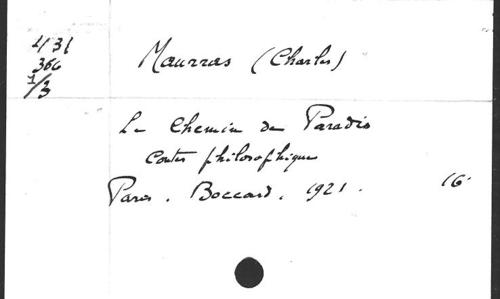 4131
366
1/3
Maurras (Charles)
Le Chemin de Paradis
Contes philosophique
Paris. Boccard. 1921. 16°